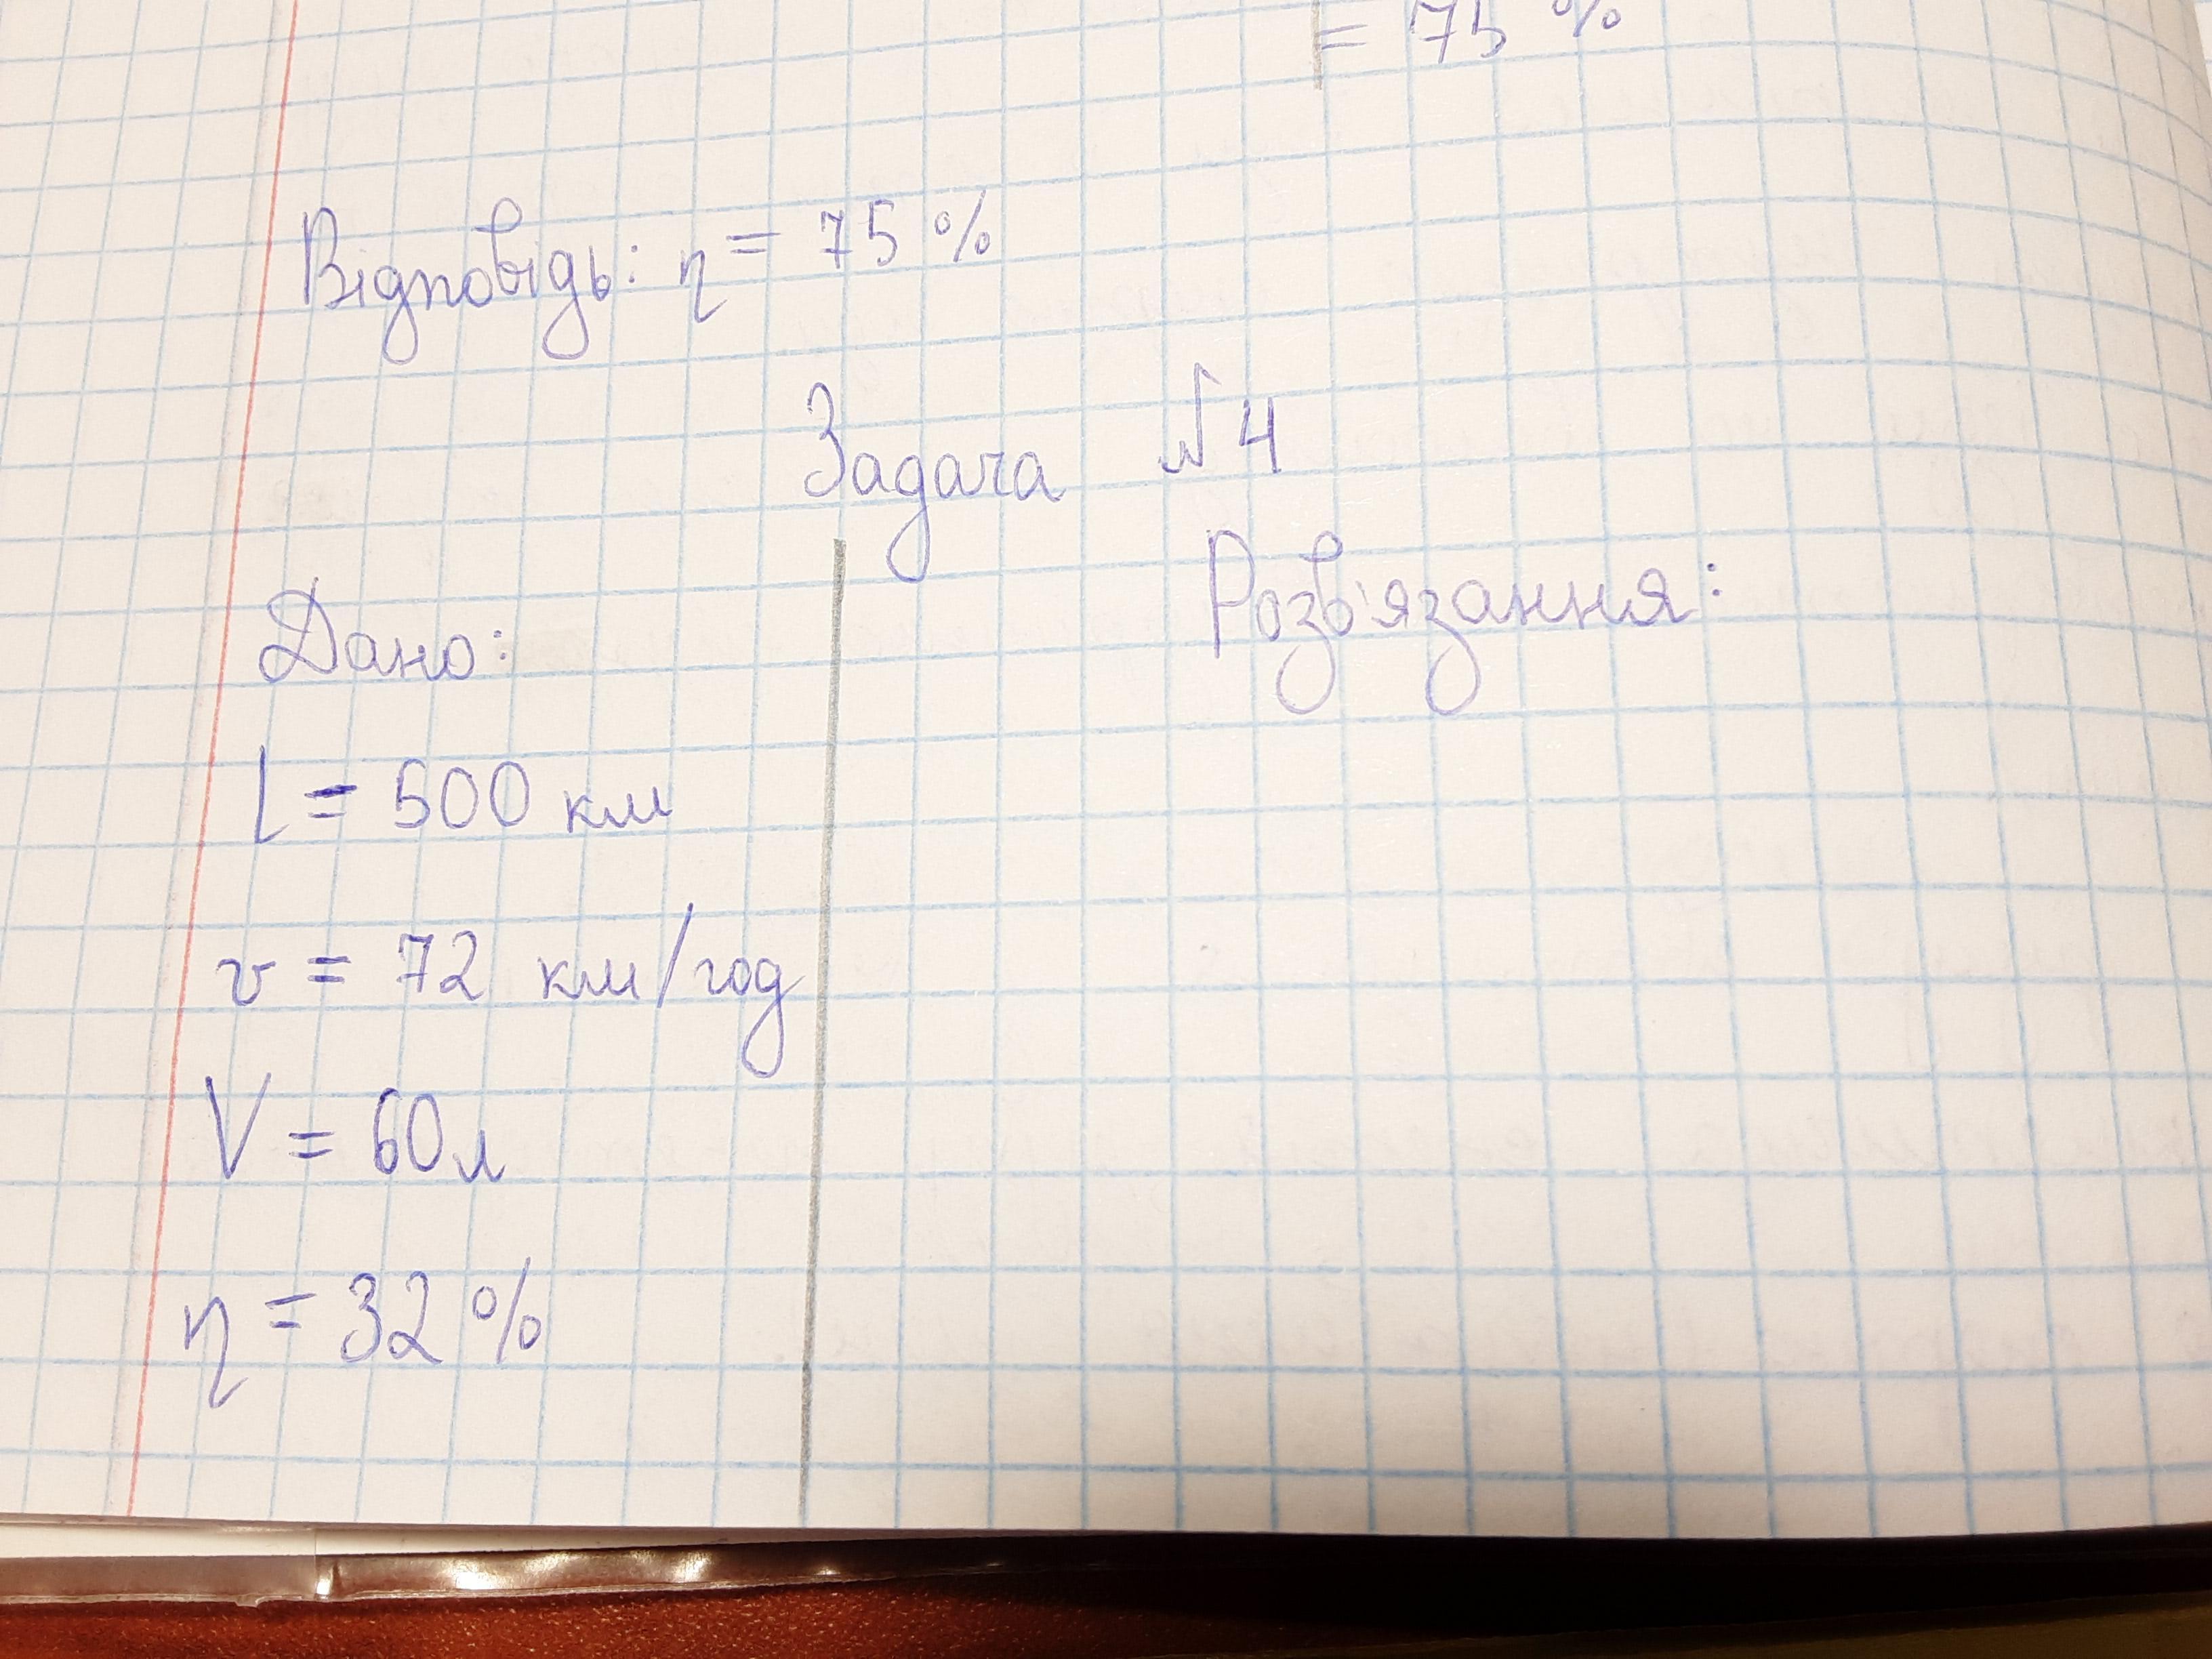 = 75 %
Відповідь: η = 75 %
Задача №4
Дано:
Розв'язання:
l = 500 км
v = 72 км/год
V = 60л
η = 32 %